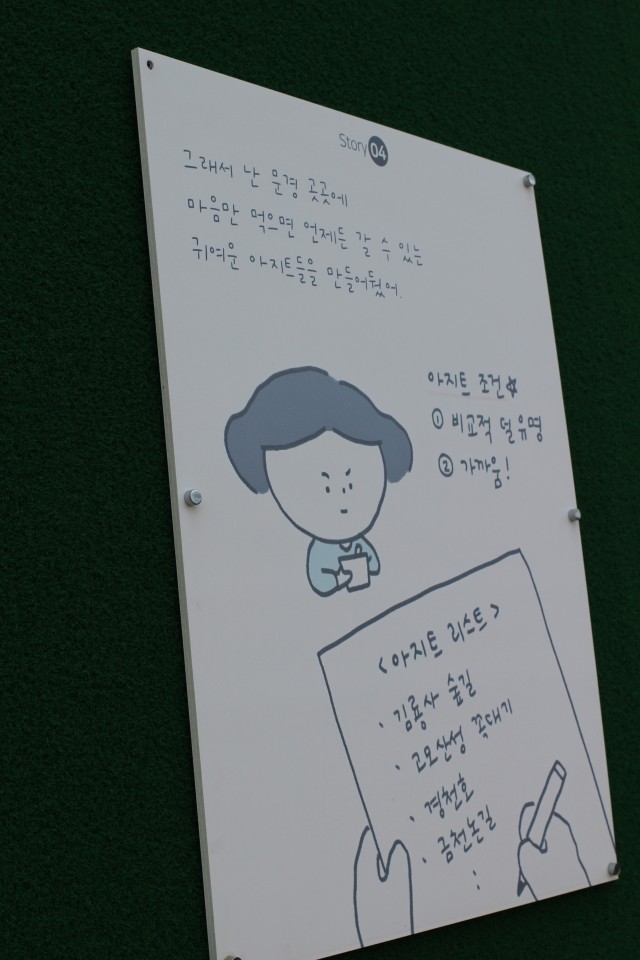 Story 04
그래서 난 문경 곳곳에
마음만 먹으면 언제든 갈 수 있는
귀여운 아지트들을 만들어뒀어.
아지트 조건☆
① 비교적 덜 유명
② 가까움!
<아지트 리스트>
· 김룡사 숲길
· 고모산성 꼭대기
· 경천호
· 금천논길
: